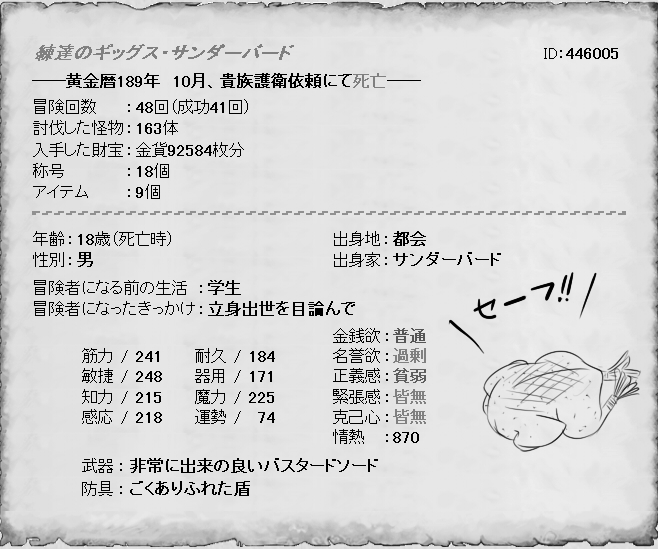 練達のギッグス・サンダーバード
ID：446005
――黄金暦189年　10月、貴族護衛依頼にて死亡――
冒険回数　：48回（成功41回）
討伐した怪物：163体
入手した財宝：金貨92584枚分
称号　：18個
アイテム　：9個
年齢：18歳（死亡時）　出身地：都会
性別：男　出身家：サンダーバード
冒険者になる前の生活　：学生
冒険者になったきっかけ：立身出世を目論んで
金銭欲：普通
筋力 / 241　耐久 / 184　名誉欲：過剰
敏捷 / 248　器用 / 171　正義感：貧弱
知力 / 215　魔力 / 225　緊張感：皆無
感応 / 218　運勢 / 74　克己心：皆無
情熱　：870
セーフ!!
武器：非常に出来の良いバスタードソード
防具：ごくありふれた盾